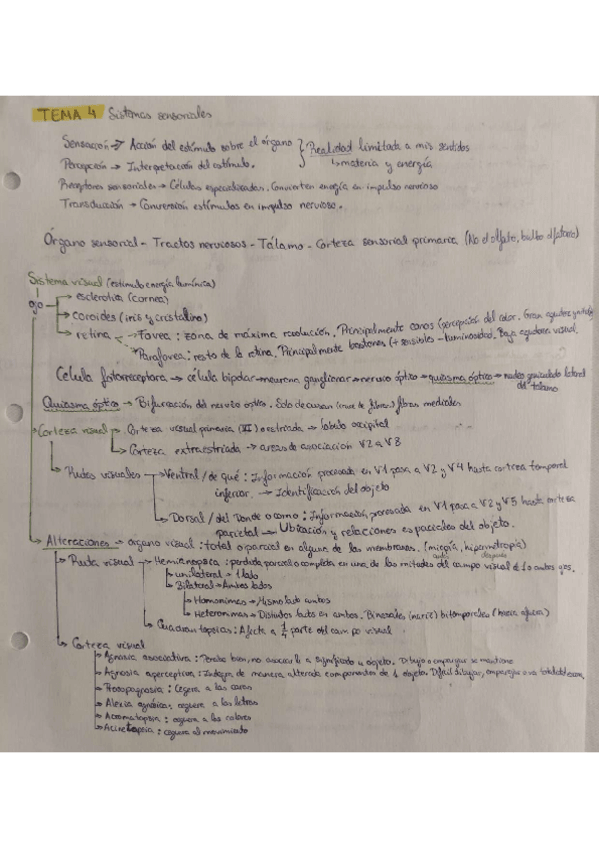 TEMA 4 Sistemas sensoriales
Sensación → Acción del estímulo sobre el órgano } Realidad limitada a mis sentidos
Percepción → Interpretación del estímulo. ↳ materia y energía
Receptores sensoriales → Células especializadas. Convierten energía en impulso nervioso
Transducción → Conversión estímulos en impulso nervioso.
Órgano sensorial - Tractos nerviosos - Tálamo - Corteza sensorial primaria (No el olfato, bulbo olfatorio)
Sistema visual (estímulo energía lumínica)
ojo → esclerótica (cornea)
→ coroides (iris y cristalino)
→ retina → Fovea: zona de máxima resolución. Principalmente conos (percepción del color. Gran agudeza
→ Parafovea: resto de la retina. Principalmente bastones (+ sensibles - luminosidad). Baja agudeza visual.
Célula fotorreceptora → célula bipolar → neurona ganglionar → nervio óptico → quiasma óptico → nucleo geniculado lateral
del tálamo
Quiasma óptico → Bifurcación del nervio óptico. Solo decusan fibras mediales
Corteza visual → Corteza visual primaria (V1) o estriada → lóbulo occipital
→ Corteza extraestriada → areas de asociación V2 a V8
→ Rutas visuales → Ventral / de qué: Información procesada en V1 pasa a V2 y V4 hasta corteza temporal
inferior. → Identificación del objeto
→ Dorsal / del Donde o como: Información procesada en V1 pasa a V2 y V5 hasta corteza
parietal → Ubicación y relaciones espaciales del objeto.
→ Alteraciones → organo visual: total o parcial en alguna de las membranas. (miopía, hipermetropía)
→ Ruta visual → Hemianopsia: perdida parcial o completa en una de las mitades del campo visual de 1 o ambos ojos.
→ unilateral → 1 lado
→ Bilateral → Ambos lados
→ Homonimas → Mismo lado ambos
→ Heteronimas → Distintos lados en ambos. Binasales (nariz) bitemporales (hacia afuera)
→ Cuadrantopsias: Afecta a 1/4 parte del campo visual
→ Corteza visual
→ Agnosia asociativa: Percibe bien, no asocia a significado u objeto. Dibujo o emparejar se mantiene
→ Agnosia aperceptiva: Integra de manera alterada componentes de 1 objeto. Dificil dibujar, emparejar
→ Prosopagnosia: Ceguera a las caras
→ Alexia agnósica: ceguera a las letras
→ Acromatopsia: ceguera a los colores
→ Acinetopsia: ceguera al movimiento